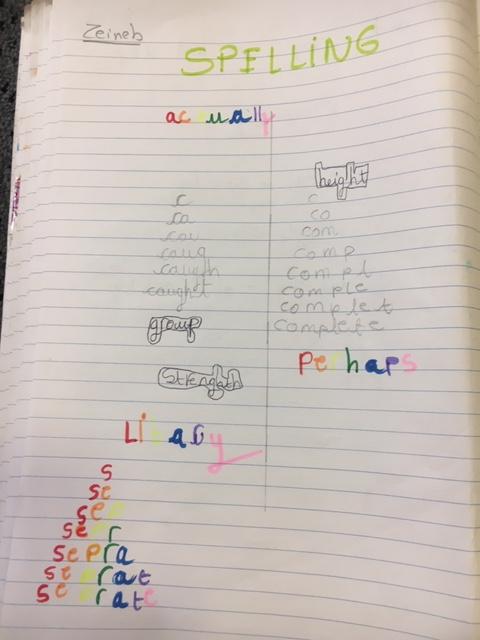 Zeineb
SPELLiNG
actually
height
c
ca
cau
caug
caugh
caught
group
c
co
com
comp
compl
comple
complet
complete
Perhaps
s
se
sep
sepr
sepra
seprat
seprate